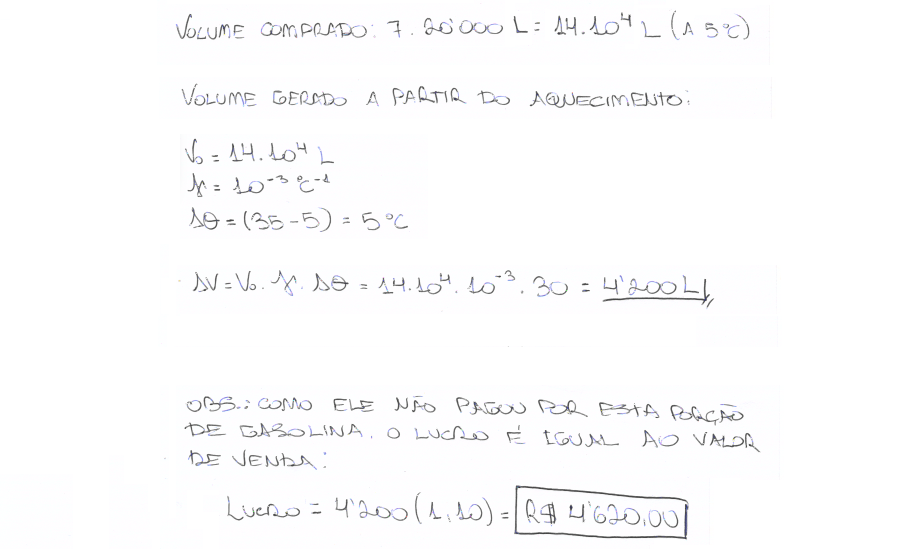 VOLUME COMPRADO: 7. 20'000 L = 14.10⁴ L (A 5°C)
VOLUME GERADO A PARTIR DO AQUECIMENTO:
V₀ = 14.10⁴ L
γ = 10⁻³ °C⁻¹
Δθ = (35-5) = 5°C
ΔV = V₀. γ. Δθ = 14.10⁴. 10⁻³. 30 = 4'200 L
OBS.: COMO ELE NÃO PAGOU POR ESTA PORÇÃO
DE GASOLINA, O LUCRO É IGUAL AO VALOR
DE VENDA:
LUCRO = 4'200 (1,10) = R$ 4'620,00